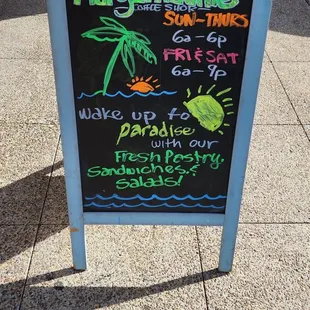 COFFEE SHOP
SUN-THURS
6a-6p
FRI & SAT
6a-9p
wake up to
paradise
with our
Fresh Pastry,
Sandwiches, &
Salads!